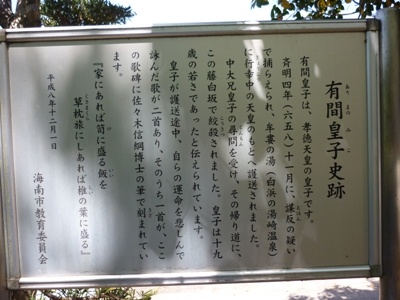 有間皇子史跡
ありまのみこ
有間皇子は、孝徳天皇の皇子です。
斉明四年(六五八)十一月に、謀反の疑い
で捕らえられ、牟婁の湯(白浜の湯崎温泉)
に行幸中の天皇のもとへ護送されました。
中大兄皇子の尋問を受け、その帰り道に、
この藤白坂で絞殺されました。皇子は十九
歳の若さであったと伝えられています。
皇子が護送途中、自らの運命を悲しんで
詠んだ歌が二首あり、そのうち一首が、ここ
の歌碑に佐々木信綱博士の筆で刻まれてい
ます。
『家にあれば笥に盛る飯を
草枕旅にしあれば椎の葉に盛る』
平成八年十二月一日
海南市教育委員会